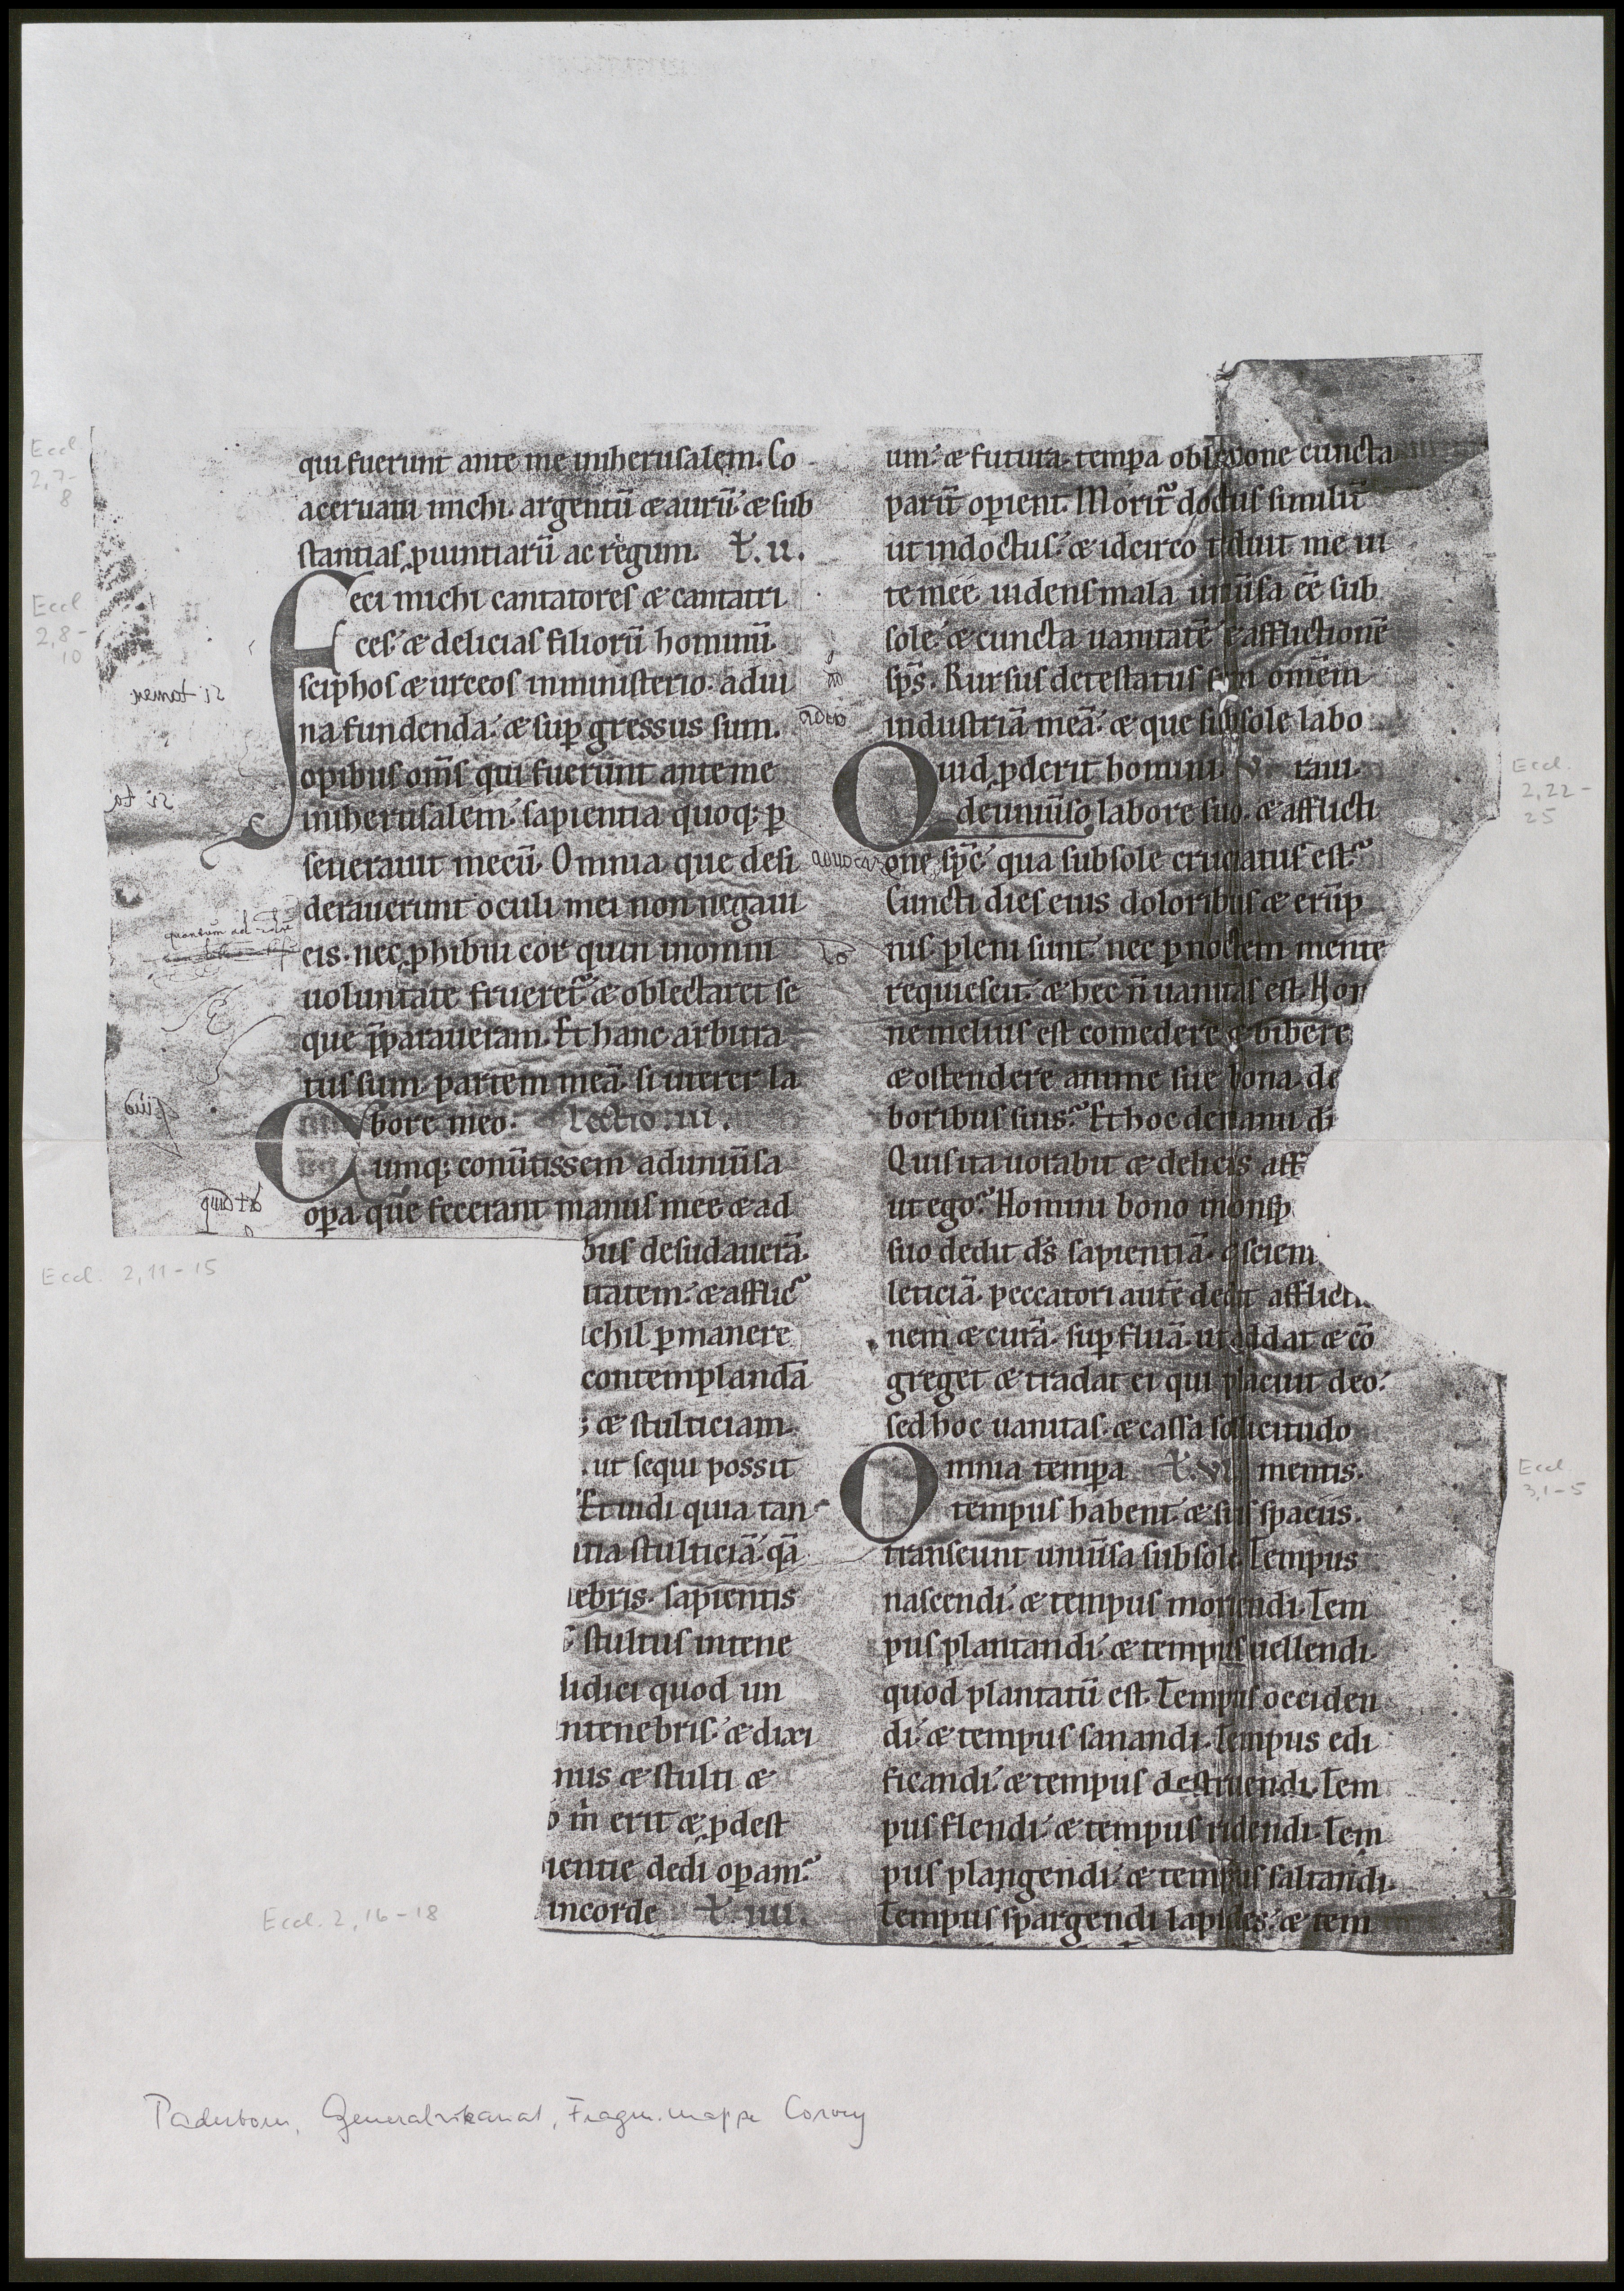 Eccl
2,7-
8
qui fuerunt ante me inherusalem. Co
aceruaui michi. argentū & aurū. & sub
stantias ꝓuintiarū ac regum. ł. II.
Eccl
2,8-
10
Feci michi cantatores & cantatri
ces. & delicias filiorū hominū.
sciphos & urceos inministerio. adui
na fundenda. & suꝑgressus sum.
opibus om̄s qui fuerunt ante me
inherusalem. sapientia quoq; ꝑ
seuerauit mecū. Omnia que desi
derauerunt oculi mei non negaui
eis. nec ꝓhibui cor quin inomni
uoluntate frueret᷑ & oblectaret se
que p̄paraueram. Et hanc arbitra
tus sum partem meā. si uterer la
bore meo. Lectio III.
Cumq; conūtissem aduniūsa
oꝑa que fecerant manus mee & ad
Eccl. 2,11-15
bus desudauerā.
itatem. & afflic᷑
ichil ꝑmanere
contemplandā
; & stulticiam.
. ut sequi possit
Et uidi quia tan
itia stulticiā. qā
nebris. sapientis
stultus intene
didici quod un
ntenebris. & dixi
nus & stulti &
o m̄ erit & ꝓdest
ientie dedi oꝑam.
incorde ł. IIII.
Eccl. 2,16-18
um. & futura temꝑa obliuione cuncta
parit᷑ oꝑient. Morit᷑ doctus similit᷑
ut indoctus. & idcirco tęduit me ui
te mee uidens mala uniūsa eē sub
sole & cuncta uanitatē & afflictionē
sp̄s. Rursus detestatus sum omēm
industriā meā. & que subsole labo
raui.
Eccl.
2,22-
25
Quid ꝓderit homini V.
deuniūso labore suo. & afflicti
one sp̄c qua subsole cruciatus est.
Cuncti dies eius doloribus & erūp
nis pleni sunt. nec ꝑ noctem mente
requiescit. & hec n̄ uanitas est. Hom
ne melius est comedere & bibere
& ostendere anime sue bona de
boribus suis. Et hoc demanu di
Quis ita uorabit & deliciis aff
ut ego. Homini bono inconsp
suo dedit ds̄ sapientiā. & scien
leticiā. peccatori autē dedit afflicti
nem & curā. suꝑfluā. ut addat & cō
greget & tradat ei qui placuit deo.
sed hoc uanitas. & cassa sollicitudo
mentis.
Eccl.
3,1-5
Omnia temꝑa ł. VI.
tempus habent. & suis spaciis.
transeunt uniūsa subsole. Tempus
nascendi. & tempus moriendi. Tem
pus plantandi. & tempus uellendi.
quod plantatū est. Tempus occiden
di. & tempus sanandi. Tempus edi
ficandi. & tempus destruendi. Tem
pus flendi. & tempus ridendi. Tem
pus plangendi. & tempus saltandi.
Tempus spargendi lapides. & tem
Paderborn, Generalvikariat, Fragm.mappe Corvey